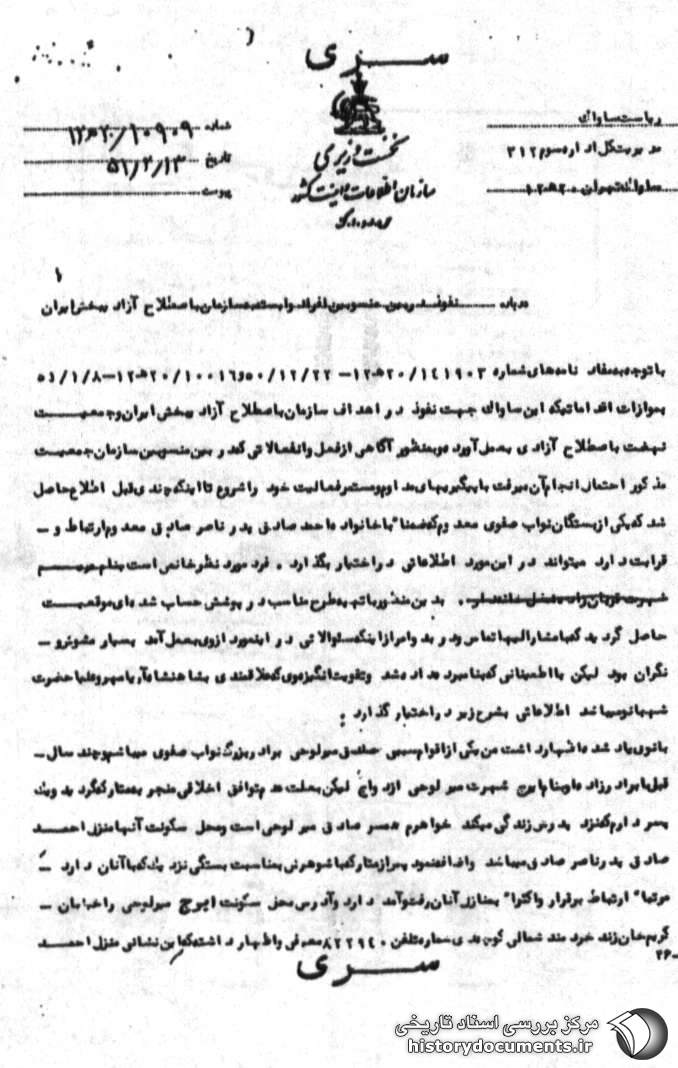 ســری
ریاست ساواک
مدیریت کل اداره سوم ۳۱۲
ساواک تهران ۱۲۰۵۲۰
نخست وزیری
سازمان اطلاعات و امنیت کشور
س.ا.و.ا.ک
شماره ۱۲۵۲۰/۱۰۹۰۹
تاریخ ۵۱/۲/۱۳
پیوست
درباره نفوذ در بین منسوبین افراد وابسته به سازمان باصطلاح آزاد یبخش ایران
با توجه بمفاد نامه های شماره ۱۴۱۹۰۳/۲۰ ه‍ ۱۲ – ۵۰/۱۲/۲۲ و ۱۰۰۱۶/۲۰ ه‍ ۱۲–۵۱/۱/۸
بموازات اقداماتیکه این ساواک جهت نفوذ در اهداف سازمان باصطلاح آزاد یبخش ایران و جمعیـــت
نهضت باصطلاح آزادی بعمل آورده و بمنظور آگاهی از فعل و انفعالاتی که در بین منسوبین سازمان جمعیت
مذکور احتمال انجام آن میرفت با پیگیریهای مداوم وستمر فعالیت خود را شروع تا اینکه چندی قبل اطلاع حاصل
شد که یکی از بستگان نواب صفوی معدوم که ضمنا" با خانواده احمد صادقی پدر ناصر صادقی معدوم ارتباط و –
قرابت دارد میتواند در این مورد اطلاعاتی در اختیار بگذارد . فرد مورد نظر خانمی است بنام مریـــم
شهرت . بدین منظور باتهیه طرح مناسب در پوشش حساب شده ای موقعیـــت
حاصل گردید که با مشارالیها تماس و در بدو امر از اینکه سئوالاتی در اینمورد از وی بعمل آمد بسیار مشوش و –
نگران بود لیکن با اطمینانی که بنامبرده داده شد و تقویت انگیزه وی که علاقمندی بشاهنشاه آریامهر و علیا حضرت
شهبانو میباشد اطلاعاتی بشرح زیر در اختیار گذارد .
بانوی یاد شده اظهار داشت من یکی از اقوام سببی میرلوحی برادر بزرگ نواب صفوی میباشم و چند سال –
قبل با برادرزاده او بنام ایرج شهرت میرلوحی ازدواج لیکن بعلت عدم توافق اخلاقی منجر بمتارکه گردید و یک
پسر دارم که نزد پدرش زندگی میکند خواهرم همسر صادق میرلوحی است و محل سکونت آنها منزل احمـــد
صادقی پدر ناصر صادقی میباشد واضافه نمود پس از متارکه با شوهرش بمناسبت بستگی نزدیک که با آنان دارد –
مرتبا" ارتباط برقرار و اکثرا" بمنازل آنان رفت و آمد دارد و آدرس محل سکونت ایرج میرلوحی را خیابان –
کریم خان زند خردمند شمالی کوچه دی شماره تلفن ۸۲۲۹۴۰ معرفی و اظهار داشته که این نشانی منزل احمـــد
۲۶–
ســری
مرکز بررسی اسناد تاریخی
historydocuments.ir